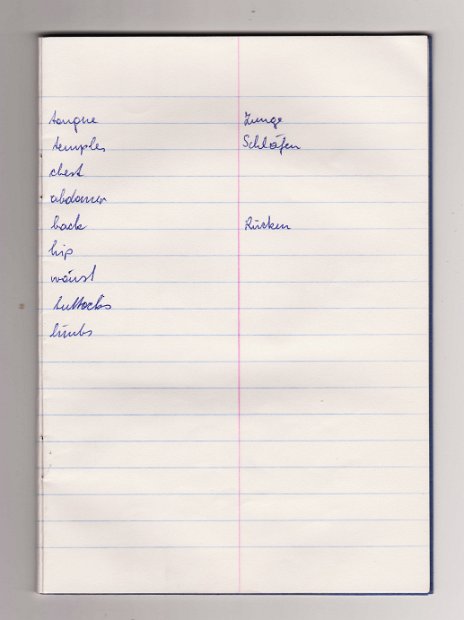 tongue Zunge
temples Schläfen
chest
abdomen
back Rücken
hip
waist
buttocks
limbs